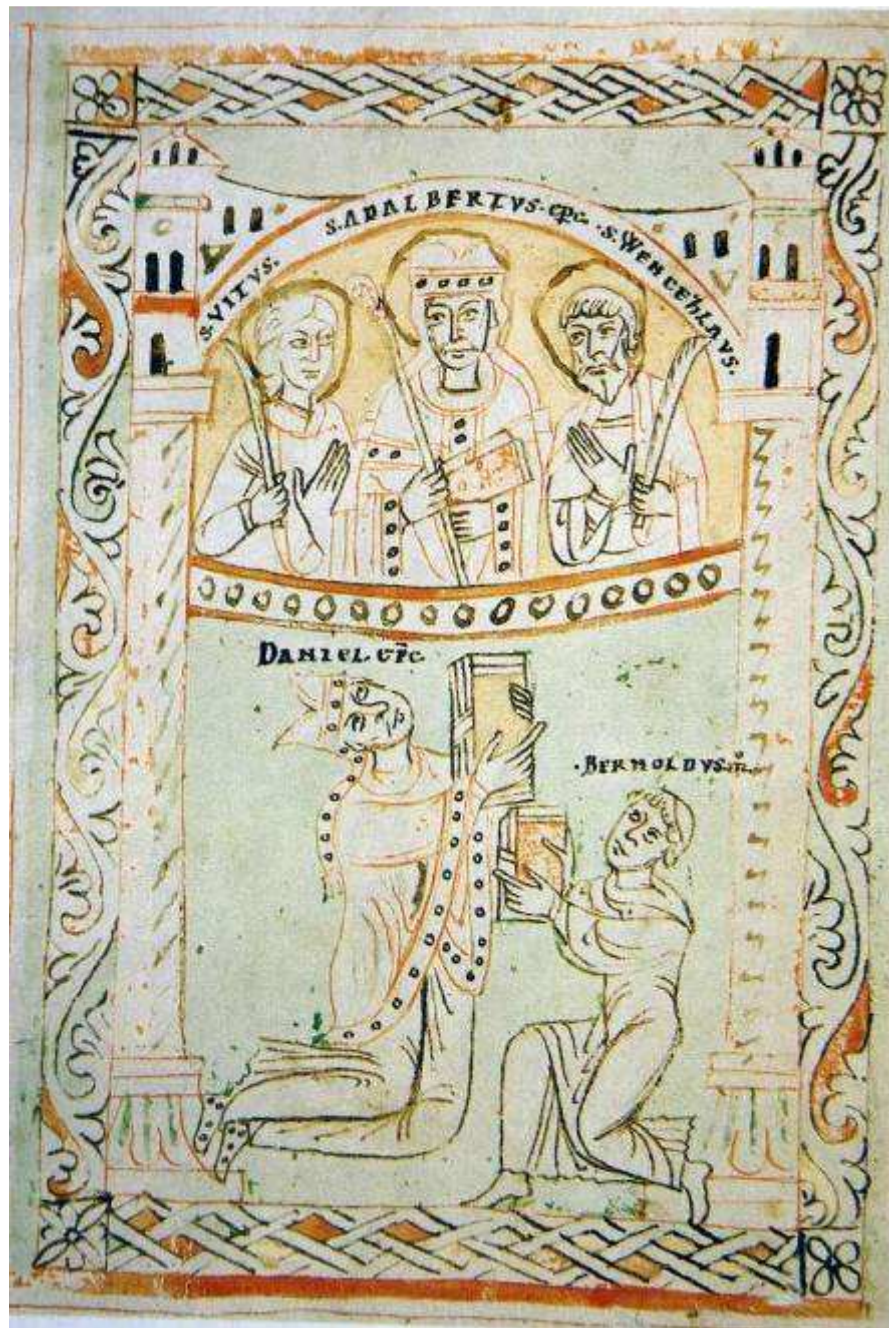 S. VITVS. S. ADALBERTVS. EP̄C. S. WENCEZLAVS.
DANIEL. EP̄C
. BERNOLDVS.